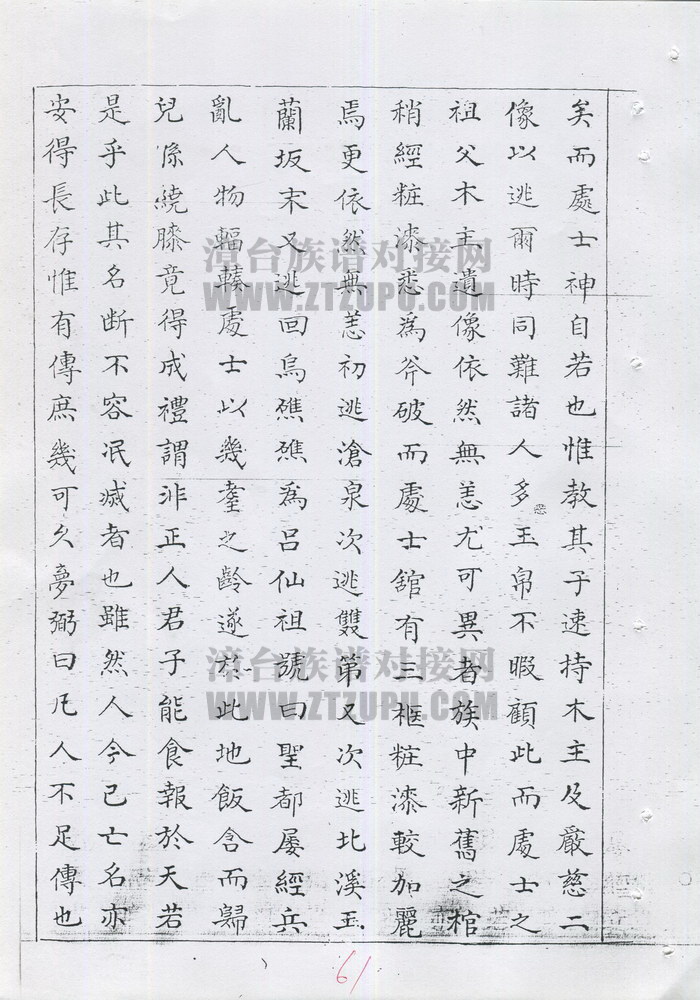 矣而處士神自若也惟教其子速持木主及嚴慈二
像以逃爾時同難諸人多玉帛不暇顧此而處士之
祖父木主遺像依然無恙尤可異者族中新舊之棺
稍經粧漆悉為斧破而處士舘有三柩粧漆較加麗
焉更依然無恙初逃滄泉次逃雙第又次逃北溪玉
蘭坂末又逃回烏礁礁為呂仙祖號曰聖都屡經兵
亂人物輻輳處士以幾耋之齡遂於此地飯含而歸
兒孫繞膝竟得成禮謂非正人君子能食報於天若
是乎此其名断不容泯滅者也雖然人今已亡名亦
安得長存惟有傳庶幾可久夢弼曰凡人不足傳也
漳台族谱对接网
WWW.ZTZUPU.COM
漳台族谱对接网
WWW.ZTZUPU.COM
61